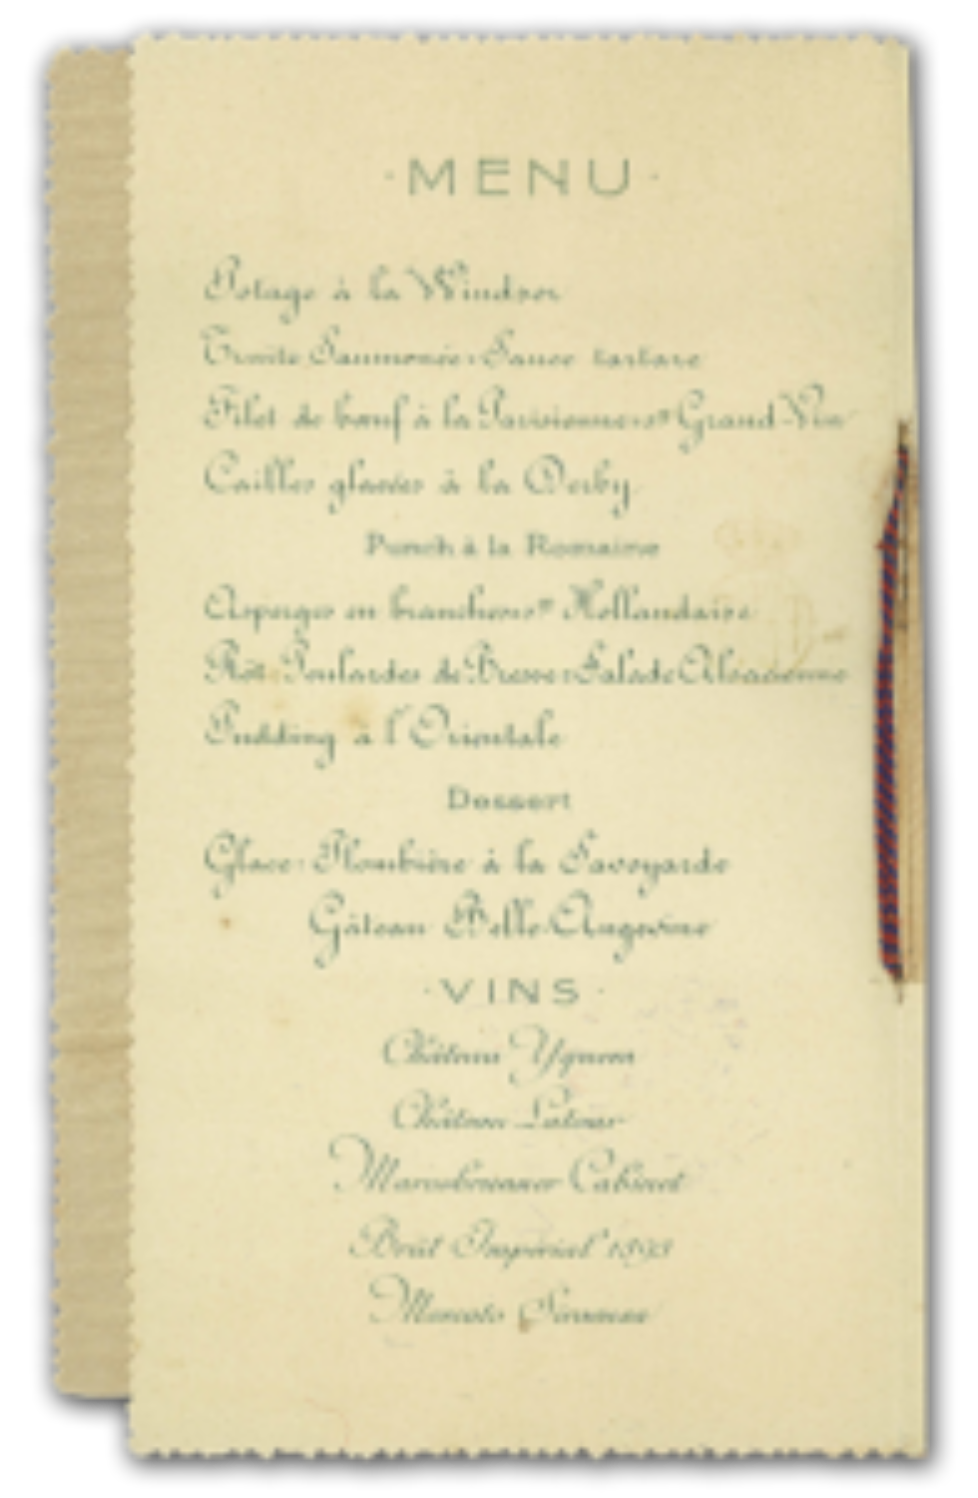 ·MENU·
Potage à la Windsor
Truite Saumonée-Sauce tartare
Filet de bœuf à la Parisienne-Sce Grand-Vin
Cailles glacées à la Derby
Punch à la Romaine
Asperges en branches-Sce Hollandaise
Rôt-Poulardes de Bresse-Salade Alsacienne
Pudding à l'Orientale
Dessert
Glace-Plombière à la Savoyarde
Gâteau Belle-Angevine
·VINS·
Château Yquem
Château Latour
Marcobrunner Cabinet
Brût Impérial 1893
Moscato